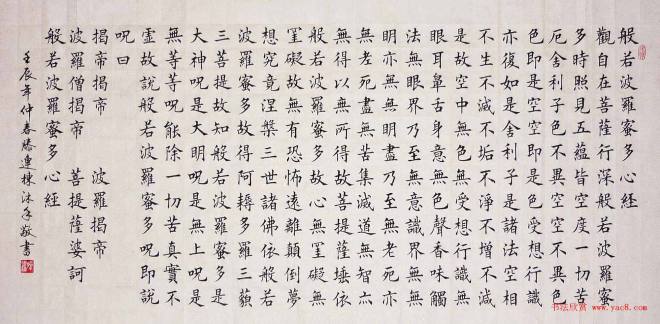 般若波羅蜜多心經
觀自在菩薩行深般若波羅蜜
多時照見五蘊皆空度一切苦
厄舍利子色不異空空不異色
色即是空空即是色受想行識
亦復如是舍利子是諸法空相
不生不滅不垢不淨不增不減
是故空中無色無受想行識無
眼耳鼻舌身意無色聲香味觸
法無眼界乃至無意識界無無
明亦無無明盡乃至無老死亦
無老死盡無苦集滅道無智亦
無得以無所得故菩提薩埵依
般若波羅蜜多故心無罣礙無
罣礙故無有恐怖遠離顛倒夢
想究竟涅槃三世諸佛依般若
波羅蜜多故得阿耨多羅三藐
三菩提故知般若波羅蜜多是
大神呪是大明呪是無上呪是
無等等呪能除一切苦真實不
虛故說般若波羅蜜多呪即說
呪曰
揭帝揭帝 波羅揭帝
波羅僧揭帝 菩提薩婆訶
般若波羅蜜多心經
壬辰年仲春滕連棟沐手敬書
书法欣赏 www.yac8.com